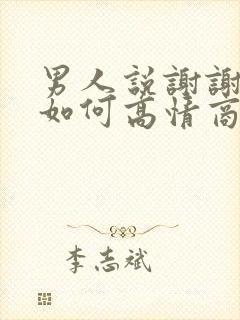 男人説謝謝
如何高情商
李志斌